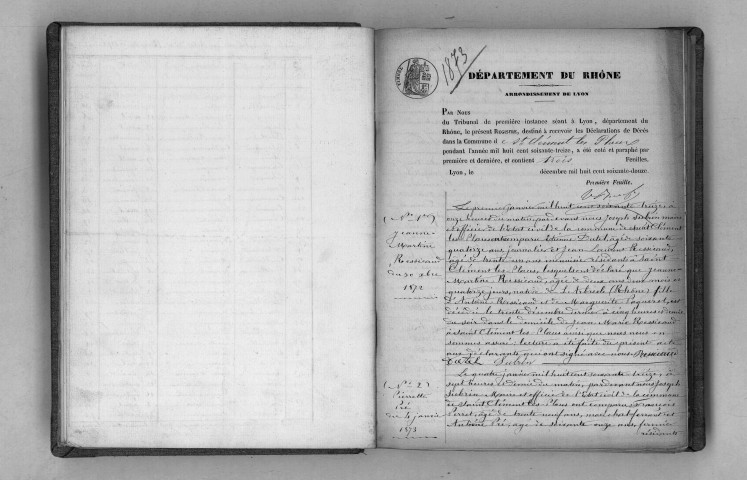 1873
DÉPARTEMENT DU RHÔNE
ARRONDISSEMENT DE LYON
PAR NOUS
du Tribunal de première instance séant à Lyon, département du
Rhône, le présent REGISTRE, destiné à recevoir les Déclarations de Décès
dans la Commune d e St Clément les Places
pendant l'année mil huit cent soixante-treize, a été coté et paraphé par
première et dernière, et contient trois Feuilles.
Lyon, le décembre mil huit cent soixante-douze.
Première Feuille.
(No 1er)
Jeanne
Martine
Ressicaud
du 30 xbre
1872
Le premier janvier mil huit cent soixante treize, à
onze heures du matin, par devant nous Joseph Subrin maire
et officier de l'Etat civil de la commune de Saint Clément
les Places ont comparu Etienne Dutel âgé de soixante
quatorze ans journalier et Jean Laurent Ressicaud,
agé de trente un ans menuisier résidants à Saint
Clément les Places, lesquels ont déclaré que Jeanne
Martine Ressicaud, agée de deux ans deux mois et
quatorze jours, native de L'Arbresle (Rhône) fille
d'Antoine Ressicaud et de Marguerite Pagneret, est
décédée le trente décembre dernier à cinq heures et demie
du soir dans le domicile de Jean Marie Ressicaud
à Saint Clément les Places ainsi que nous nous en
sommes assuré : lecture a été faite du présent acte
aux déclarants qui ont signé avec nous. Ressicaud
Dutel Subrin
(No 2)
Pierrette
Pré
du 4 janvier
1873
Le quatre janvier mil huit cent soixante treize, à
sept heures et demie du matin, par devant nous Joseph
Subrin Maire et officier de l'Etat civil de la commune
de Saint Clément les Places ont comparu François
Perret âgé de trente neuf ans, maréchal ferrant et
Antoine Pré, age de soixante onze ans, fermier
résidants